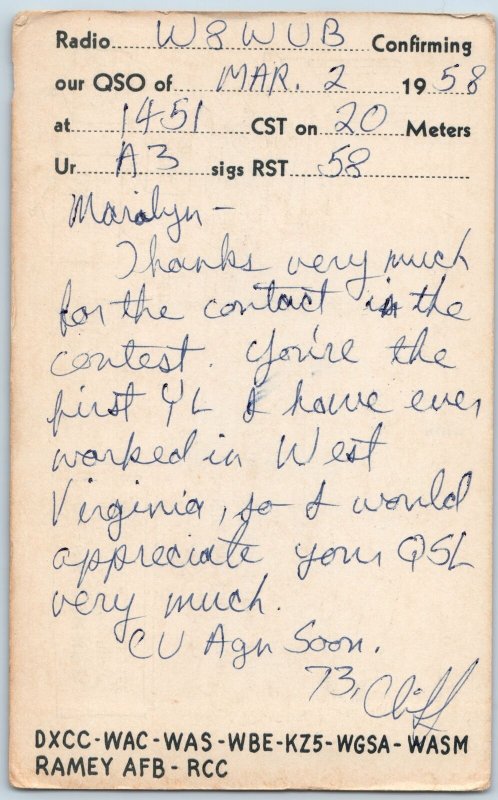 Radio W8WUB Confirming
our QSO of MAR. 2 1958
at 1451 CST on 20 Meters
Ur A3 sigs RST 58
Maralyn -
Thanks very much
for the contact in the
contest. You're the
first YL I have ever
worked in West
Virginia, so I would
appreciate your QSL
very much.
CU Agn Soon.
73, Cliff
DXCC-WAC-WAS-WBE-KZ5-WGSA-WASM
RAMEY AFB-RCC